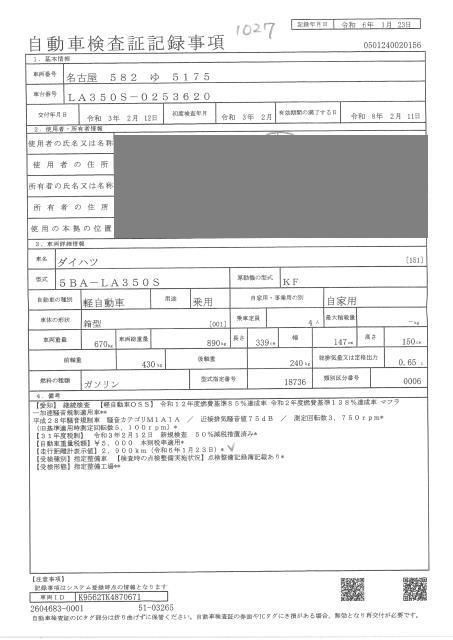 1027
記録年月日 令和 6年 1月 23日
自動車検査証記録事項
0501240020156
1. 基本情報
車両番号 名古屋 582 ゆ 5175
車台番号 LA350S-0253620
交付年月日 令和 3年 2月 12日 初度検査年月 令和 3年 2月 有効期間の満了する日 令和 8年 2月 11日
2. 使用者・所有者情報
使用者の氏名又は名称
使用者の住所
所有者の氏名又は名称
所有者の住所
使用の本拠の位置
3. 車両詳細情報
車名 ダイハツ [151]
型式 5BA-LA350S 原動機の型式 KF
自動車の種別 軽自動車 用途 乗用 自家用・事業用の別 自家用
車体の形状 箱型 [001] 乗車定員 4人 最大積載量 -kg
車両重量 670kg 車両総重量 890kg 長さ 339cm 幅 147cm 高さ 150cm
前軸重 430kg 後軸重 240kg 総排気量又は定格出力 0.65 L
燃料の種類 ガソリン 型式指定番号 18736 類別区分番号 0006
4. 備考
【愛知】 継続検査 【軽自動車OSS】 令和12年度燃費基準85%達成車 令和2年度燃費基準138%達成車 マフラ
ー加速騒音規制適用車**
平成28年騒音規制車 騒音カテゴリM1A1A / 近接排気騒音値75dB / 測定回転数3,750rpm*
(旧基準適用時測定回転数5,100rpm)*
【31年度税制】 令和3年2月12日 新規検査 50%減税措置済み*
【自動車重量税額】¥5,000 本則税率適用*
【走行距離計表示値】2,900km(令和6年1月23日)*
【受検種別】指定整備車 【検査時の点検整備実施状況】点検整備記録簿記載あり*
【受検形態】指定整備工場**
【注意事項】
記録事項はシステム登録時点の情報となります
車両ID K9562TK4870671
2604683-0001 51-03265
自動車検査証のICタグ部分は折り曲げずに保管ください。自動車検査証の券面やICタグにき損がある場合、無効となり再交付が必要です。